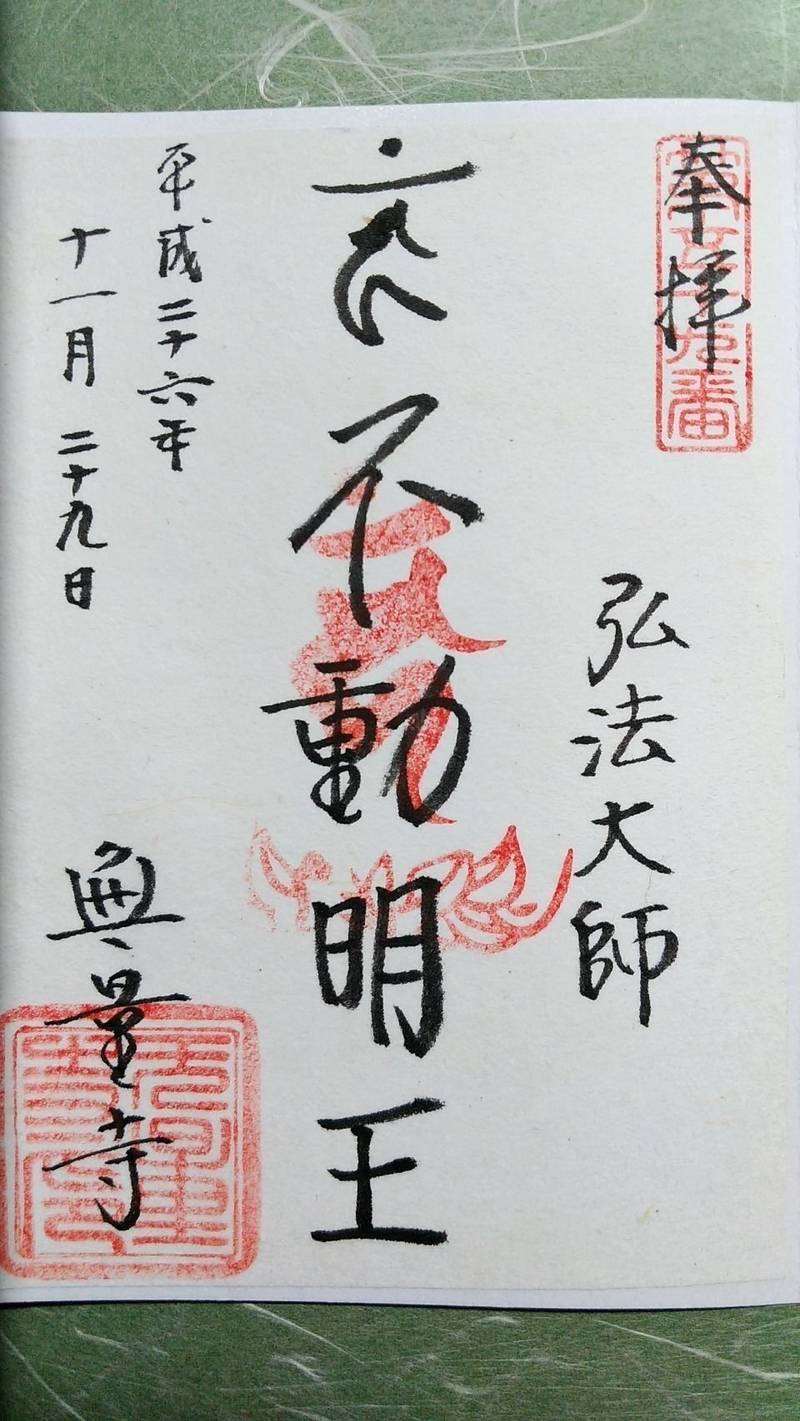 奉拝
第五十九番
弘法大師
不動明王
平成二十六年
十一月二十九日
無量寺